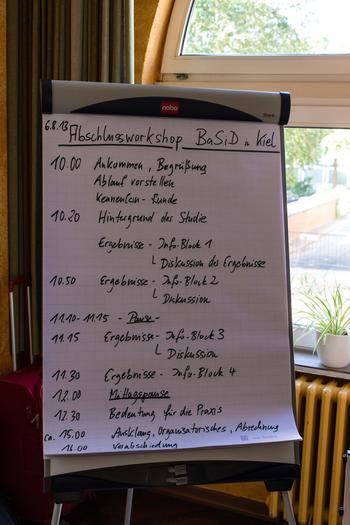 nobo
6.8.13 Abschlussworkshop BaSiD in Kiel
10.00 Ankommen, Begrüßung
Ablauf vorstellen
Kennenlern-Runde
10.20 Hintergrund der Studie
Ergebnisse - Info-Block 1
└ Diskussion der Ergebnisse
10.50 Ergebnisse - Info-Block 2
└ Diskussion
11.10-11.15 - Pause -
11.15 Ergebnisse - Info-Block 3
└ Diskussion
11.30 Ergebnisse - Info-Block 4
12.00 Mittagspause
12.30 Bedeutung für die Praxis
ca. 15.00 Ausklang, Organisatorisches, Abrechnung
16.00 Verabschiedung